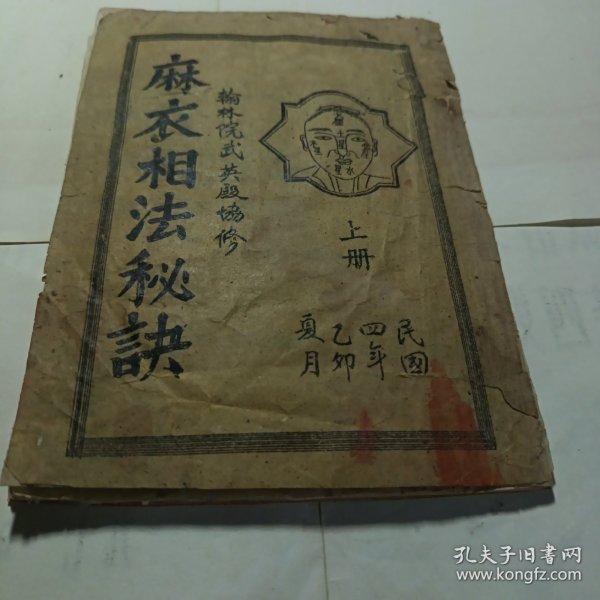 麻衣相法秘訣
翰林院武英殿協修
上册
民國
四年
乙卯
夏月
孔夫子旧书网
www.kongfz.com